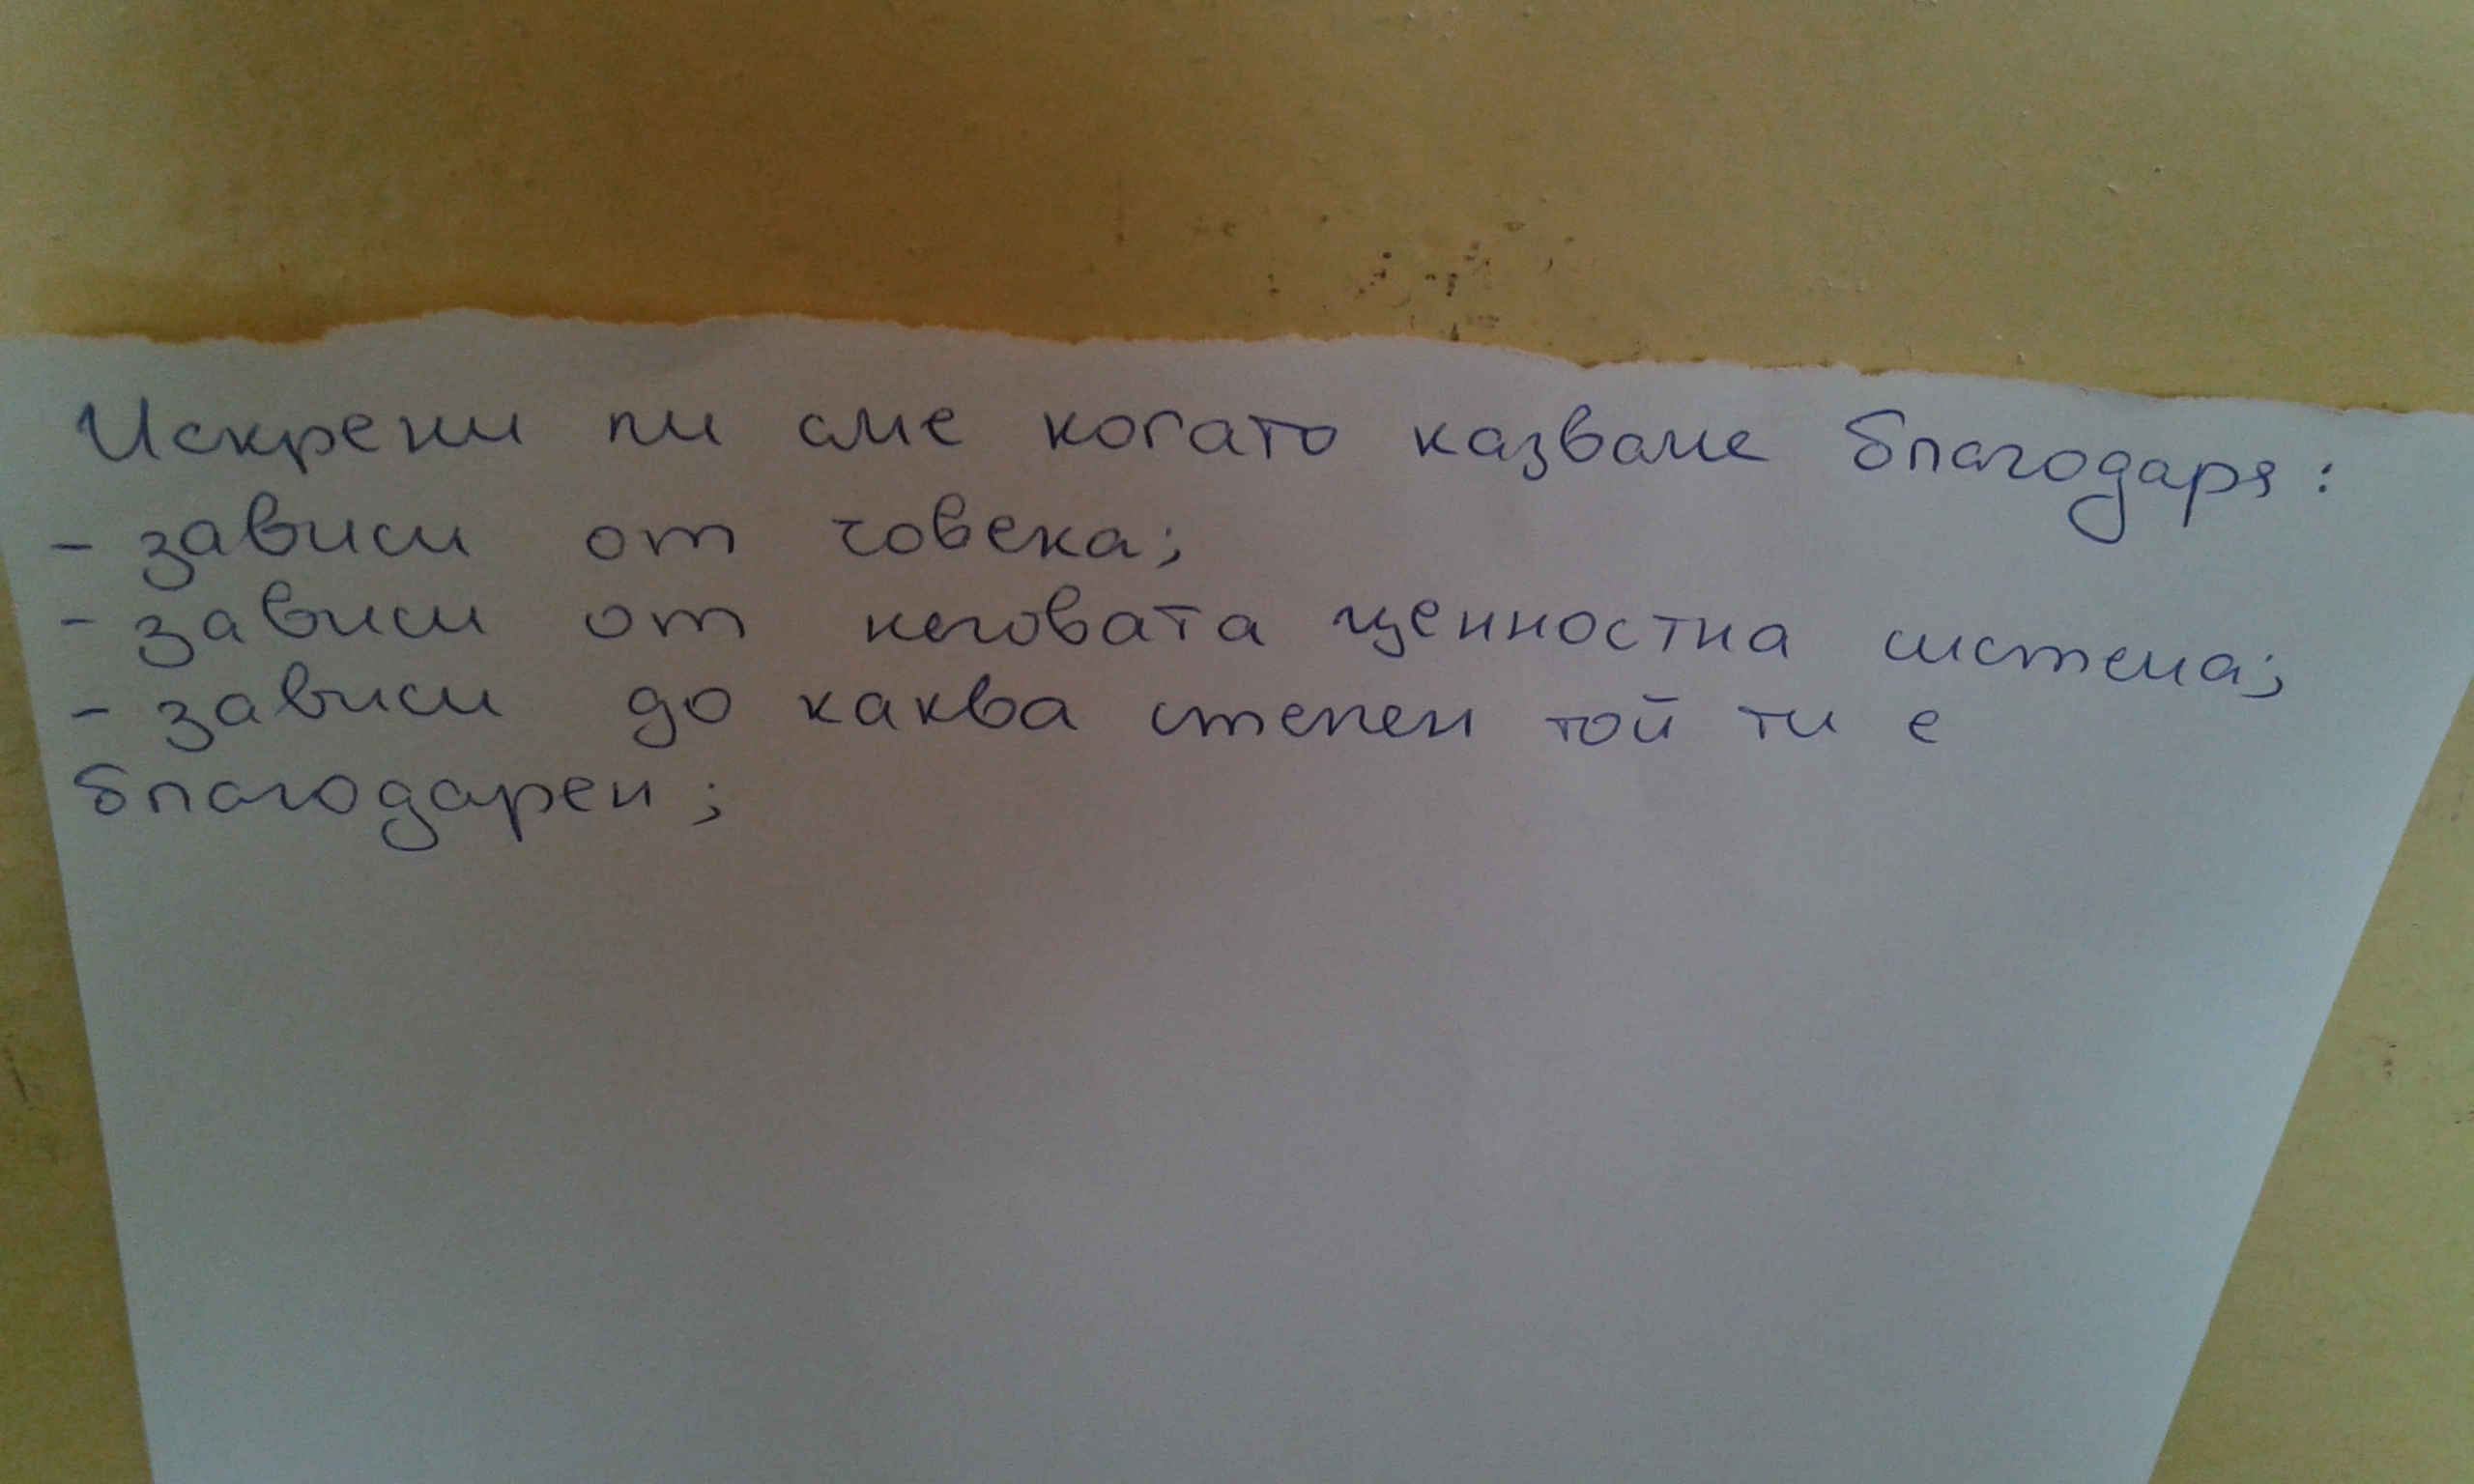 Искрени ли сме когато казваме благодаря:
- зависи от човека;
- зависи от неговата ценностна система;
- зависи до каква степен той ти е
благодарен;